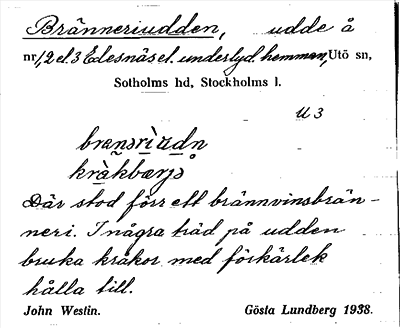 Bränneriudden, udde å
nr 1, 2 el. 3 Edesnäs el. underlyd. hemman, Utö sn,
Sotholms hd, Stockholms l.
U 3
brænəriùdn
kràkbærjə
Där stod förr ett brännvinsbrän-
neri. I några träd på udden
bruka kråkor med förkärlek
hålla till.
John Westin. Gösta Lundberg 1938.